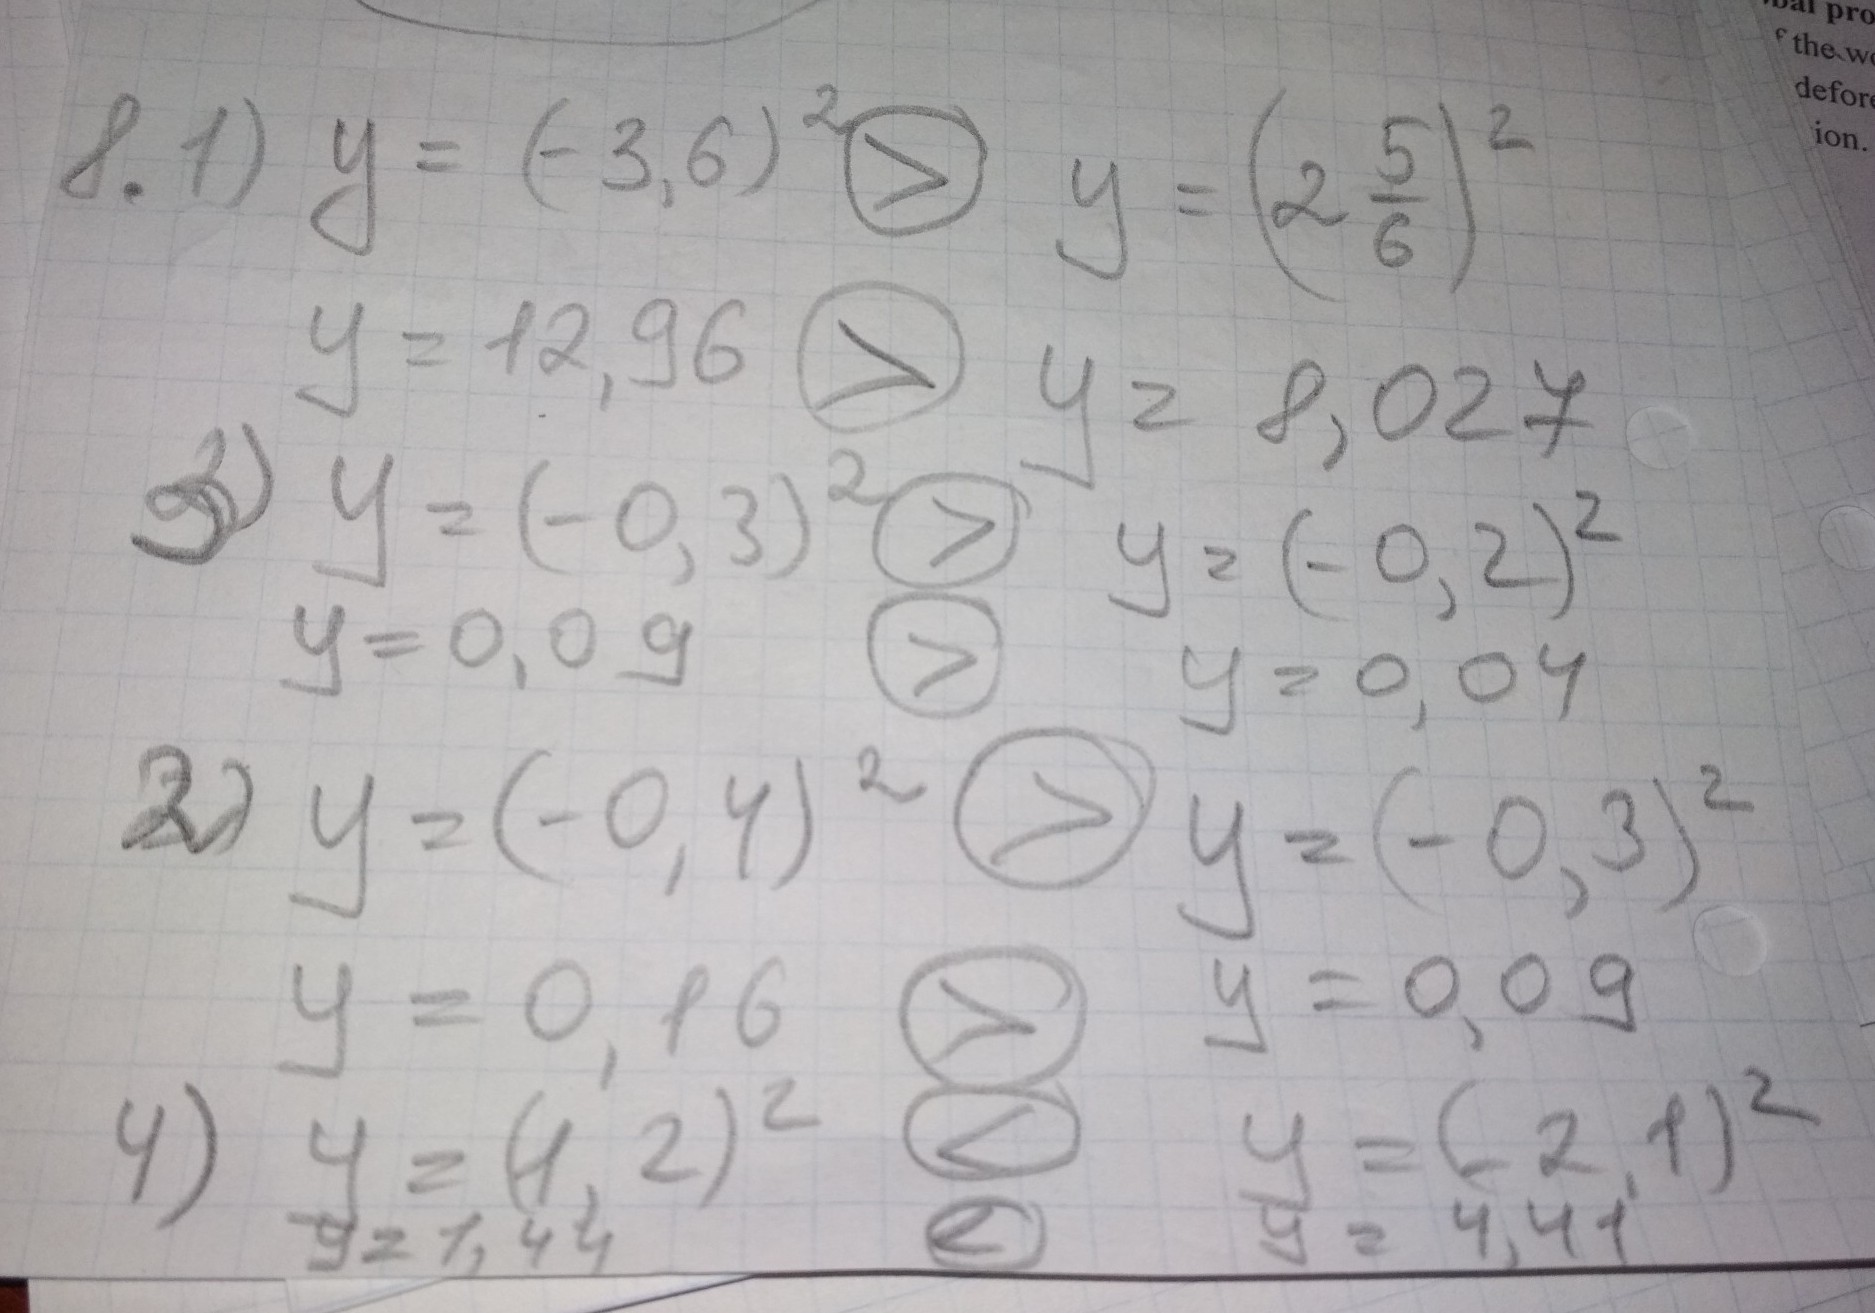 8.1) y = (-3,6)² > y = (2 5/6)²
y = 12,96 > y = 8,027
3) y = (-0,3)² > y = (-0,2)²
y = 0,09 > y = 0,04
2) y = (-0,4)² > y = (-0,3)²
y = 0,16 > y = 0,09
4) y = (1,2)² < y = (-2,1)²
y = 1,44 < y = 4,41
pro
the
ion.